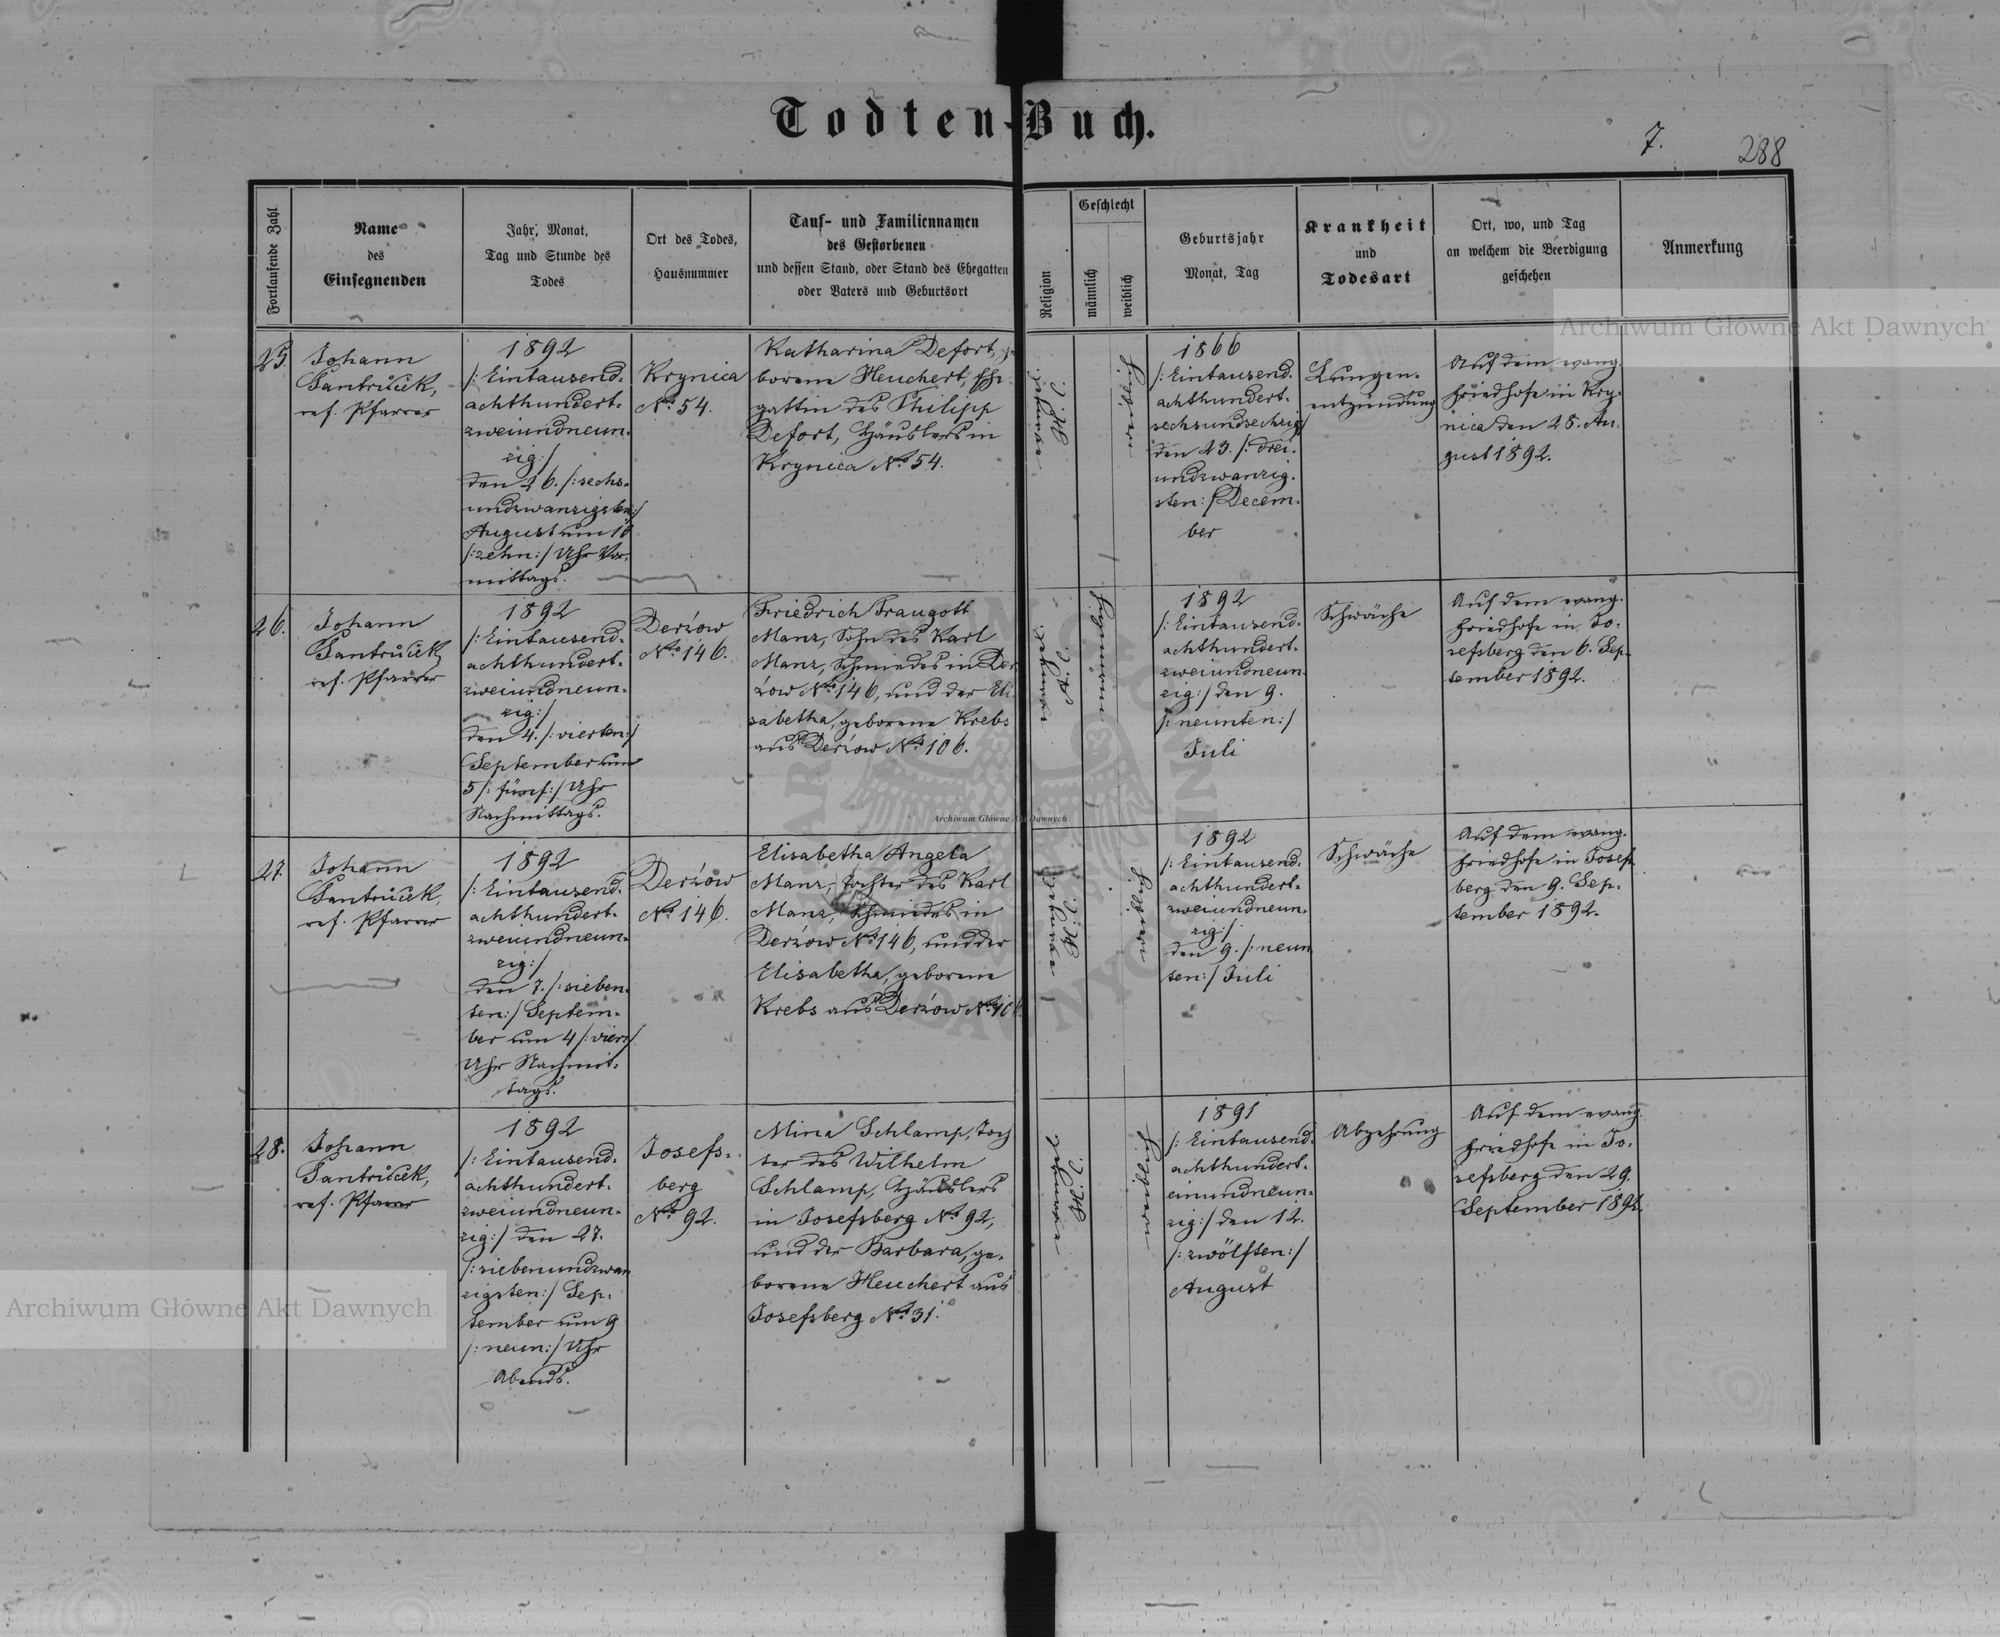 Todten-Buch.
7.
288
Fortlaufende Zahl
Name
des
Einsegnenden
Jahr, Monat,
Tag und Stunde des
Todes
Ort des Todes,
Hausnummer
Tauf- und Familiennamen
des Gestorbenen
und dessen Stand, oder Stand des Ehegatten
oder Vaters und Geburtsort
Religion
Geschlecht
männlich
weiblich
Geburtsjahr
Monat, Tag
Krankheit
und
Todesart
Ort, wo, und Tag
an welchem die Beerdigung
geschehen
Anmerkung
25.
Johann
Jantrůček,
ref. Pfarrer
1892
/: Eintausend-
achthundert-
zweiundneun-
zig :/
den 26. /: sechs-
undzwanzigsten :/
August um 10
/: zehn :/ Uhr Vor-
mittags.
Krynica
No. 54.
Katharina Defort, ge-
borene Heuchert, Ehe-
gattin des Philipp
Defort, Häuslers in
Krynica No. 54.
weiblich
1866
/: Eintausend-
achthundert-
sechsundsechzig :/
den 23. /: drei-
undzwanzig-
sten :/ Decem-
ber
Lungen-
entzündung
Auf dem evang.
Friedhofe in Kry-
nica den 28. Au-
gust 1892.
26.
Johann
Jantrůček,
ref. Pfarrer
1892
/: Eintausend-
achthundert-
zweiundneun-
zig :/
den 4. /: vierten :/
September um
5 /: fünf :/ Uhr
Nachmittags.
Derżow
No. 146.
Friedrich Traugott
Manz, Sohn des Karl
Manz, Schmiedes in Der-
żow No. 146, und der Eli-
sabetha, geborene Krebs
aus Derżow No. 106.
männlich
1892
/: Eintausend-
achthundert-
zweiundneun-
zig :/ den 9.
/: neunten :/
Juli
Schwäche
Auf dem evang.
Friedhofe in Jo-
sefsberg den 6. Sep-
tember 1892.
27.
Johann
Jantrůček,
ref. Pfarrer
1892
/: Eintausend-
achthundert-
zweiundneun-
zig :/
den 7. /: sieben-
ten :/ Septem-
ber um 4 /: vier :/
Uhr Nachmit-
tags.
Derżow
No. 146.
Elisabetha Angela
Manz, Tochter des Karl
Manz, Schmiedes in
Derżow No. 146, und der
Elisabetha, geborene
Krebs aus Derżow No. 106
weiblich
1892
/: Eintausend-
achthundert-
zweiundneun-
zig :/
den 9. /: neun-
ten :/ Juli
Schwäche
Auf dem evang.
Friedhofe in Josefs-
berg den 9. Sep-
tember 1892.
28.
Johann
Jantrůček,
ref. Pfarrer
1892
/: Eintausend-
achthundert-
zweiundneun-
zig :/ den 27.
/: siebenundzwan-
zigsten :/ Sep-
tember um 9
/: neun :/ Uhr
Abends.
Josefs-
berg
No. 92.
Mina Schlamp, Toch-
ter des Wilhelm
Schlamp, Häuslers
in Josefsberg No. 92,
und der Barbara, ge-
borene Heuchert aus
Josefsberg No. 31.
weiblich
1891
/: Eintausend-
achthundert-
einundneun-
zig :/ den 12.
/: zwölften :/
August
Abzehrung
Auf dem evang.
Friedhofe in Jo-
sefsberg den 29.
September 1892.
Archiwum Główne Akt Dawnych
Archiwum Główne Akt Dawnych
Archiwum Główne Akt Dawnych